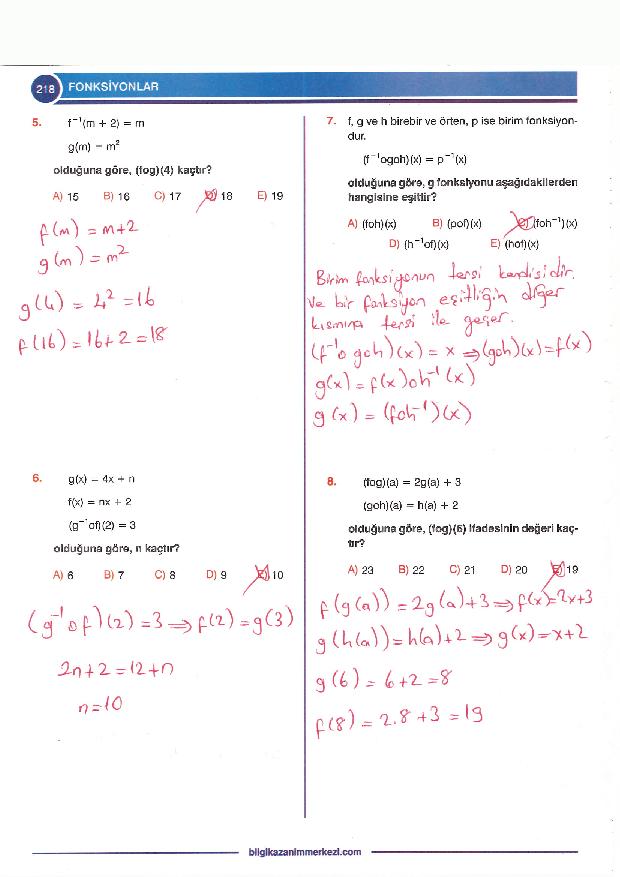 218 FONKSİYONLAR
5. f⁻¹(m + 2) = m
g(m) = m²
olduğuna göre, (fog)(4) kaçtır?
A) 15 B) 16 C) 17 D) 18 E) 19
f(m) = m+2
g(m) = m²
g(4) = 4² = 16
f(16) = 16+2 = 18
6. g(x) = 4x + n
f(x) = nx + 2
(g⁻¹of)(2) = 3
olduğuna göre, n kaçtır?
A) 6 B) 7 C) 8 D) 9 E) 10
(g⁻¹of)(2) = 3 ⇒ f(2) = g(3)
2n+2 = 12+n
n=10
7. f, g ve h birebir ve örten, p ise birim fonksiyon-
dur.
(f⁻¹ogoh)(x) = p⁻¹(x)
olduğuna göre, g fonksiyonu aşağıdakilerden
hangisine eşittir?
A) (foh)(x) B) (pof)(x) C) (foh⁻¹)(x)
D) (h⁻¹of)(x) E) (hof)(x)
Birim fonksiyonun tersi kendisidir.
Ve bir fonksiyon eşitliğin diğer
kısmına tersi ile geçer.
(f⁻¹o goh)(x) = x ⇒ (goh)(x) = f(x)
g(x) = f(x)oh⁻¹(x)
g(x) = (foh⁻¹)(x)
8. (fog)(a) = 2g(a) + 3
(goh)(a) = h(a) + 2
olduğuna göre, (fog)(6) ifadesinin değeri kaç-
tır?
A) 23 B) 22 C) 21 D) 20 E) 19
f(g(a)) = 2g(a)+3 ⇒ f(x)=2x+3
g(h(a)) = h(a)+2 ⇒ g(x)=x+2
g(6) = 6+2 = 8
f(8) = 2.8+3 = 19
bilgikazanimmerkezi.com